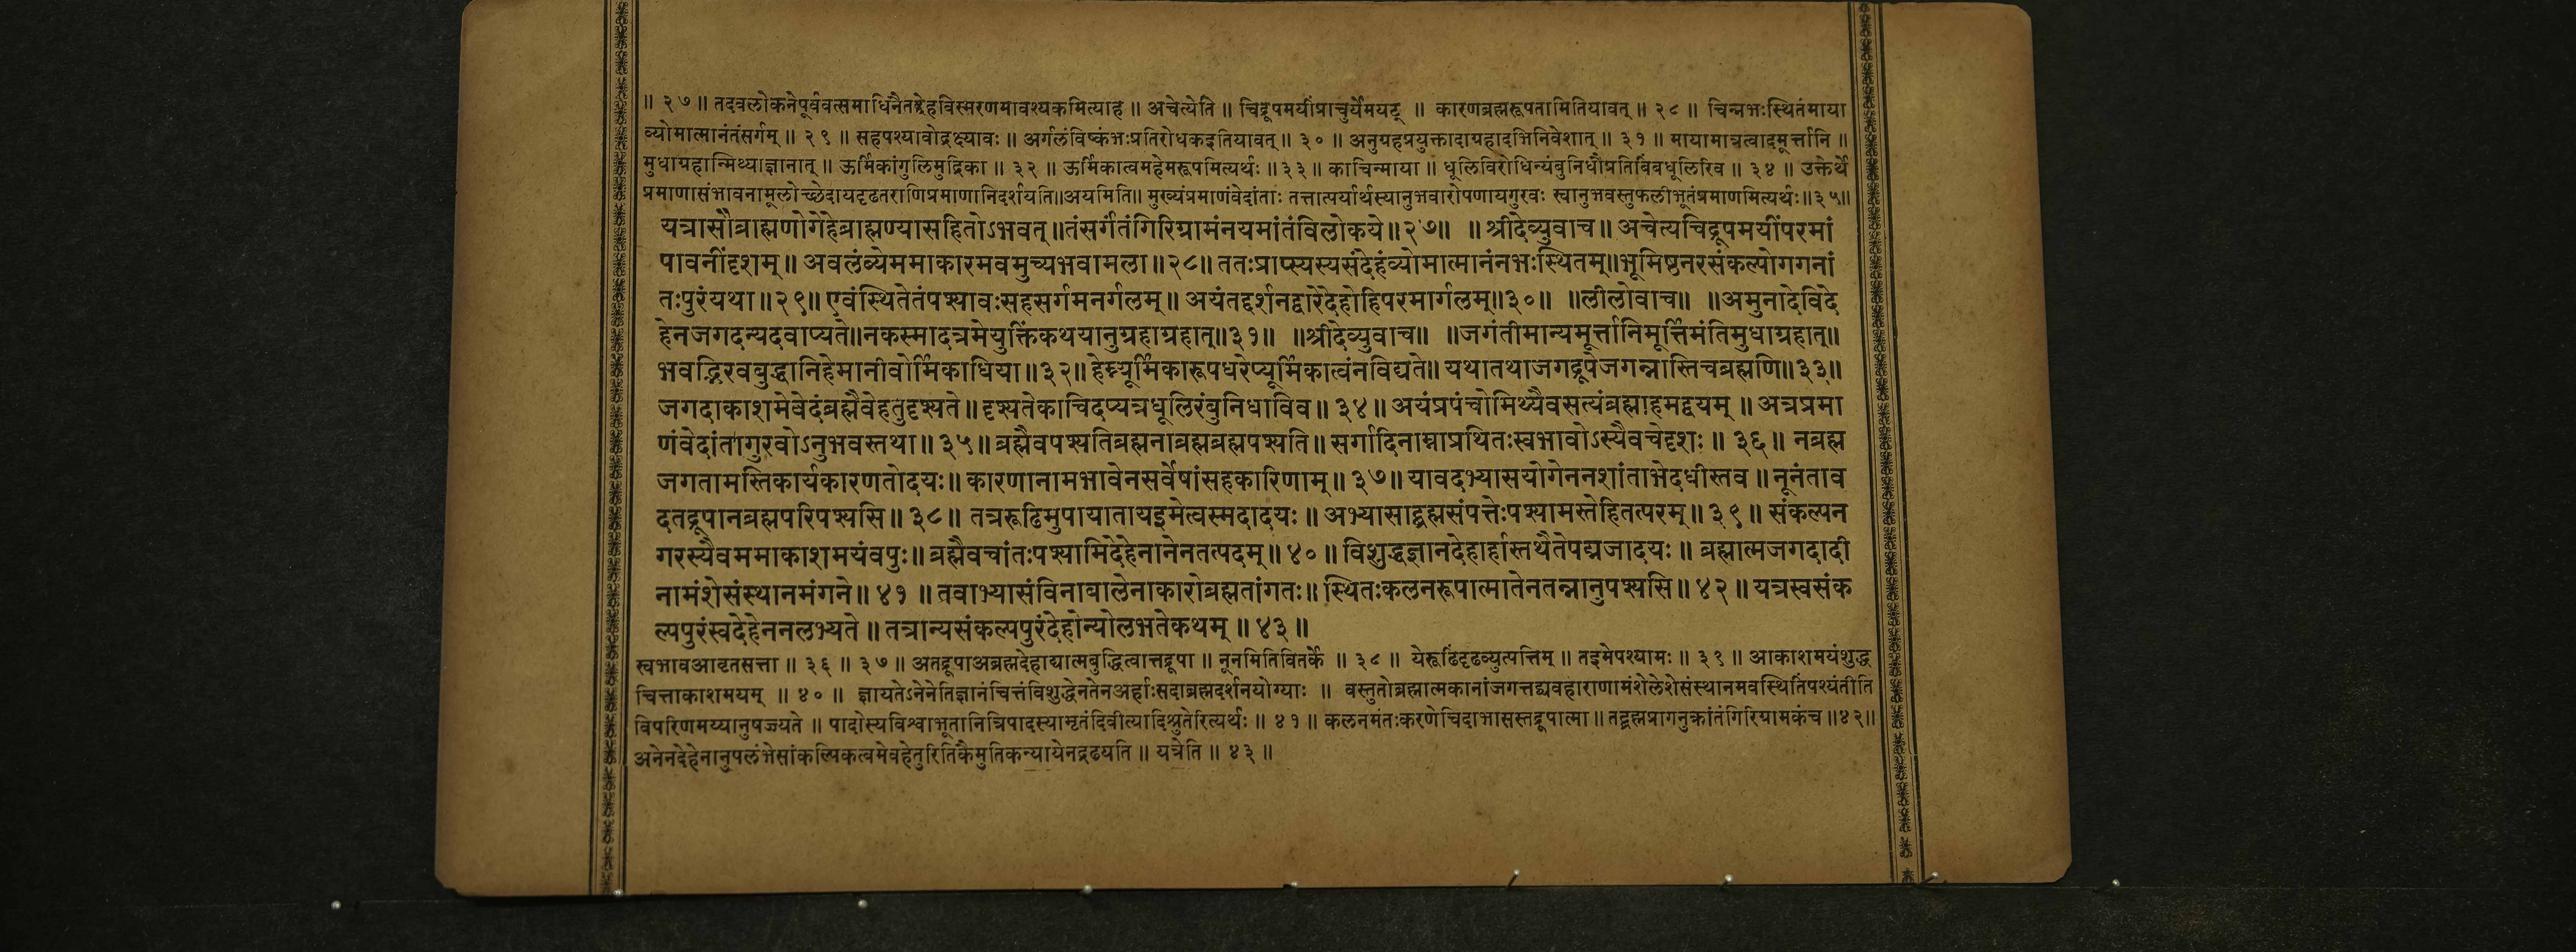 ॥ २७ ॥ तदवलोकनेपूर्ववत्समाधिनैतद्देहविस्मरणमावश्यकमित्याह ॥ अचेत्येति ॥ चिद्रूपमयींप्राचुर्येमयट् ॥ कारणब्रह्मरूपतामितियावत् ॥ २८ ॥ चिन्नभःस्थितंमाया
व्योमात्मानंतंसर्गम् ॥ २९ ॥ सहपश्यावोद्रक्ष्यावः ॥ अर्गलंविष्कंभःप्रतिरोधकइतियावत् ॥ ३० ॥ अनुग्रहप्रयुक्तादाग्रहादभिनिवेशात् ॥ ३१ ॥ मायामात्रत्वादमूर्त्तानि ॥
मुधाग्रहान्मिथ्याज्ञानात् ॥ ऊर्मिकांगुलिमुद्रिका ॥ ३२ ॥ ऊर्मिकात्वमहेमरूपमित्यर्थः ॥ ३३ ॥ काचिन्माया ॥ धूलिविरोधिन्यंबुनिधौप्रतिबिंबधूलिरिव ॥ ३४ ॥ उक्तेर्थे
प्रमाणासंभावनामूलोच्छेदायदृढतराणिप्रमाणानिदर्शयति॥अयमिति॥ मुख्यंप्रमाणंवेदांताः तत्तात्पर्यार्थस्यानुभवारोपणायगुरवः स्वानुभवस्तुफलीभूतंप्रमाणमित्यर्थः॥३५॥
यत्रासौब्राह्मणोगेहेब्राह्मण्यासहितोऽभवत् ॥तंसर्गंतंगिरिग्रामंनयमांतंविलोकये॥२७॥ ॥ श्रीदेव्युवाच॥ अचेत्यचिद्रूपमयींपरमां
पावनींदृशम्॥ अवलंब्येममाकारमवमुच्यभवामला॥२८॥ ततःप्राप्स्यस्यसंदेहंव्योमात्मानंनभःस्थितम्॥भूमिष्ठनरसंकल्पोगगनां
तःपुरंयथा॥२९॥ एवंस्थितेतंपश्यावःसहसर्गमनर्गलम्॥ अयंतद्दर्शनद्वारेदेहोहिपरमार्गलम्॥३०॥ ॥लीलोवाच॥ ॥अमुनादेविदे
हेनजगदन्यदवाप्यते॥नकस्मादत्रमेयुक्तिंकथयानुग्रहाग्रहात्॥३१॥ ॥श्रीदेव्युवाच॥ ॥जगंतीमान्यमूर्त्तानिमूर्त्तिमंतिमुधाग्रहात्॥
भवद्भिरवबुद्धानिहेमानीवोर्मिकाधिया॥३२॥हेम्न्यूर्मिकारूपधरेप्यूर्मिकात्वंनविद्यते॥ यथातथाजगद्रूपेजगन्नास्तिचब्रह्मणि॥३३॥
जगदाकाशमेवेदंब्रह्मैवेहतुदृश्यते॥दृश्यतेकाचिदप्यत्रधूलिरंबुनिधाविव॥ ३४॥ अयंप्रपंचोमिथ्यैवसत्यंब्रह्माहमद्वयम् ॥ अत्रप्रमा
णंवेदांतागुरवोऽनुभवस्तथा॥ ३५॥ ब्रह्मैवपश्यतिब्रह्मनाब्रह्मब्रह्मपश्यति॥ सर्गादिनाम्नाप्रथितःस्वभावोऽस्यैवचेदृशः ॥ ३६॥ नब्रह्म
जगतामस्तिकार्यकारणतोदयः॥ कारणानामभावेनसर्वेषांसहकारिणाम्॥ ३७॥ यावदभ्यासयोगेननशांताभेदधीस्तव ॥ नूनंताव
दतद्रूपानब्रह्मपरिपश्यसि॥ ३८॥ तत्ररूढिमुपायातायइमेत्वस्मदादयः ॥ अभ्यासाद्ब्रह्मसंपत्तेःपश्यामस्तेहितत्परम्॥ ३९॥ संकल्पन
गरस्यैवममाकाशमयंवपुः॥ ब्रह्मैवचांतःपश्यामिदेहेनानेनतत्पदम्॥ ४०॥ विशुद्धज्ञानदेहार्हास्तथैतेपद्मजादयः ॥ ब्रह्मात्मजगदादी
नामंशेसंस्थानमंगने॥ ४१ ॥ तवाभ्यासंविनाबालेनाकारोब्रह्मतांगतः॥ स्थितःकलनरूपात्मातेनतन्नानुपश्यसि॥ ४२॥ यत्रस्वसंक
ल्पपुरंस्वदेहेननलभ्यते॥ तत्रान्यसंकल्पपुरंदेहोन्योलभतेकथम् ॥ ४३॥
स्वभावआवृतसत्ता ॥ ३६ ॥ ३७ ॥ अतद्रूपाअब्रह्मदेहाद्यात्मबुद्धित्वात्तद्रूपा ॥ नूनमितिवितर्के ॥ ३८ ॥ येरूढिंदृढव्युत्पत्तिम् ॥ तइमेपश्यामः ॥ ३९ ॥ आकाशमयंशुद्ध
चित्ताकाशमयम् ॥ ४० ॥ ज्ञायतेऽनेनेतिज्ञानंचित्तंविशुद्धेनतेनअर्हाःसदाब्रह्मदर्शनयोग्याः ॥ वस्तुतोब्रह्मात्मकानांजगत्तद्व्यवहाराणामंशेलेशेसंस्थानमवस्थितिंपश्यंतीति
विपरिणमय्यानुषज्यते ॥ पादोस्यविश्वाभूतानित्रिपादस्यामृतंदिवीत्यादिश्रुतेरित्यर्थः ॥ ४१ ॥ कलनमंतःकरणेचिदाभासस्तद्रूपात्मा॥ तद्ब्रह्मप्रागनुक्रांतंगिरिग्रामकंच ॥४२॥
अनेनदेहेनानुपलंभेसांकल्पिकत्वमेवहेतुरितिकैमुतिकन्यायेनद्रढयति ॥ यत्रेति ॥ ४३ ॥